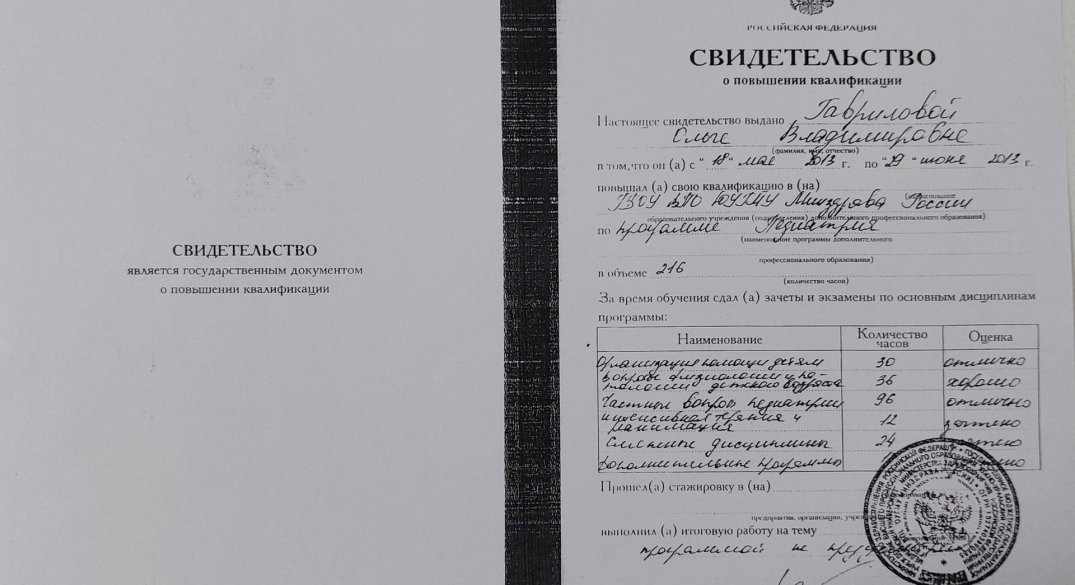 СВИДЕТЕЛЬСТВО
является государственным документом
о повышении квалификации
РОССИЙСКАЯ ФЕДЕРАЦИЯ
СВИДЕТЕЛЬСТВО
о повышении квалификации
Настоящее свидетельство выдано Гавриловой
Ольге Владимировне
(фамилия, имя, отчество)
в том,что он (а) с "18" мая 2013 г. по "29" июня 2013 г.
повышал (а) свою квалификацию в (на)
(наименование
ГБОУ ВПО ЮУГМУ Минздрава России
образовательного учреждения (подразделения) дополнительного профессионального образования)
по программе Педиатрия
(наименование программы дополнительного
профессионального образования)
в объеме 216
(количество часов)
За время обучения сдал (а) зачеты и экзамены по основным дисциплинам
программы:
Наименование Количество часов Оценка
Организация помощи детям 30 отлично
Вопросы физиологии и патологии детского возраста 36 хорошо
Частные вопросы педиатрии 96 отлично
Интенсивная терапия и реанимация 12 зачтено
Смежные дисциплины 24
Дополнительные программы
Прошел(а) стажировку в (на)
предприятия, организации,
выполнил (а) итоговую работу на тему
программой не